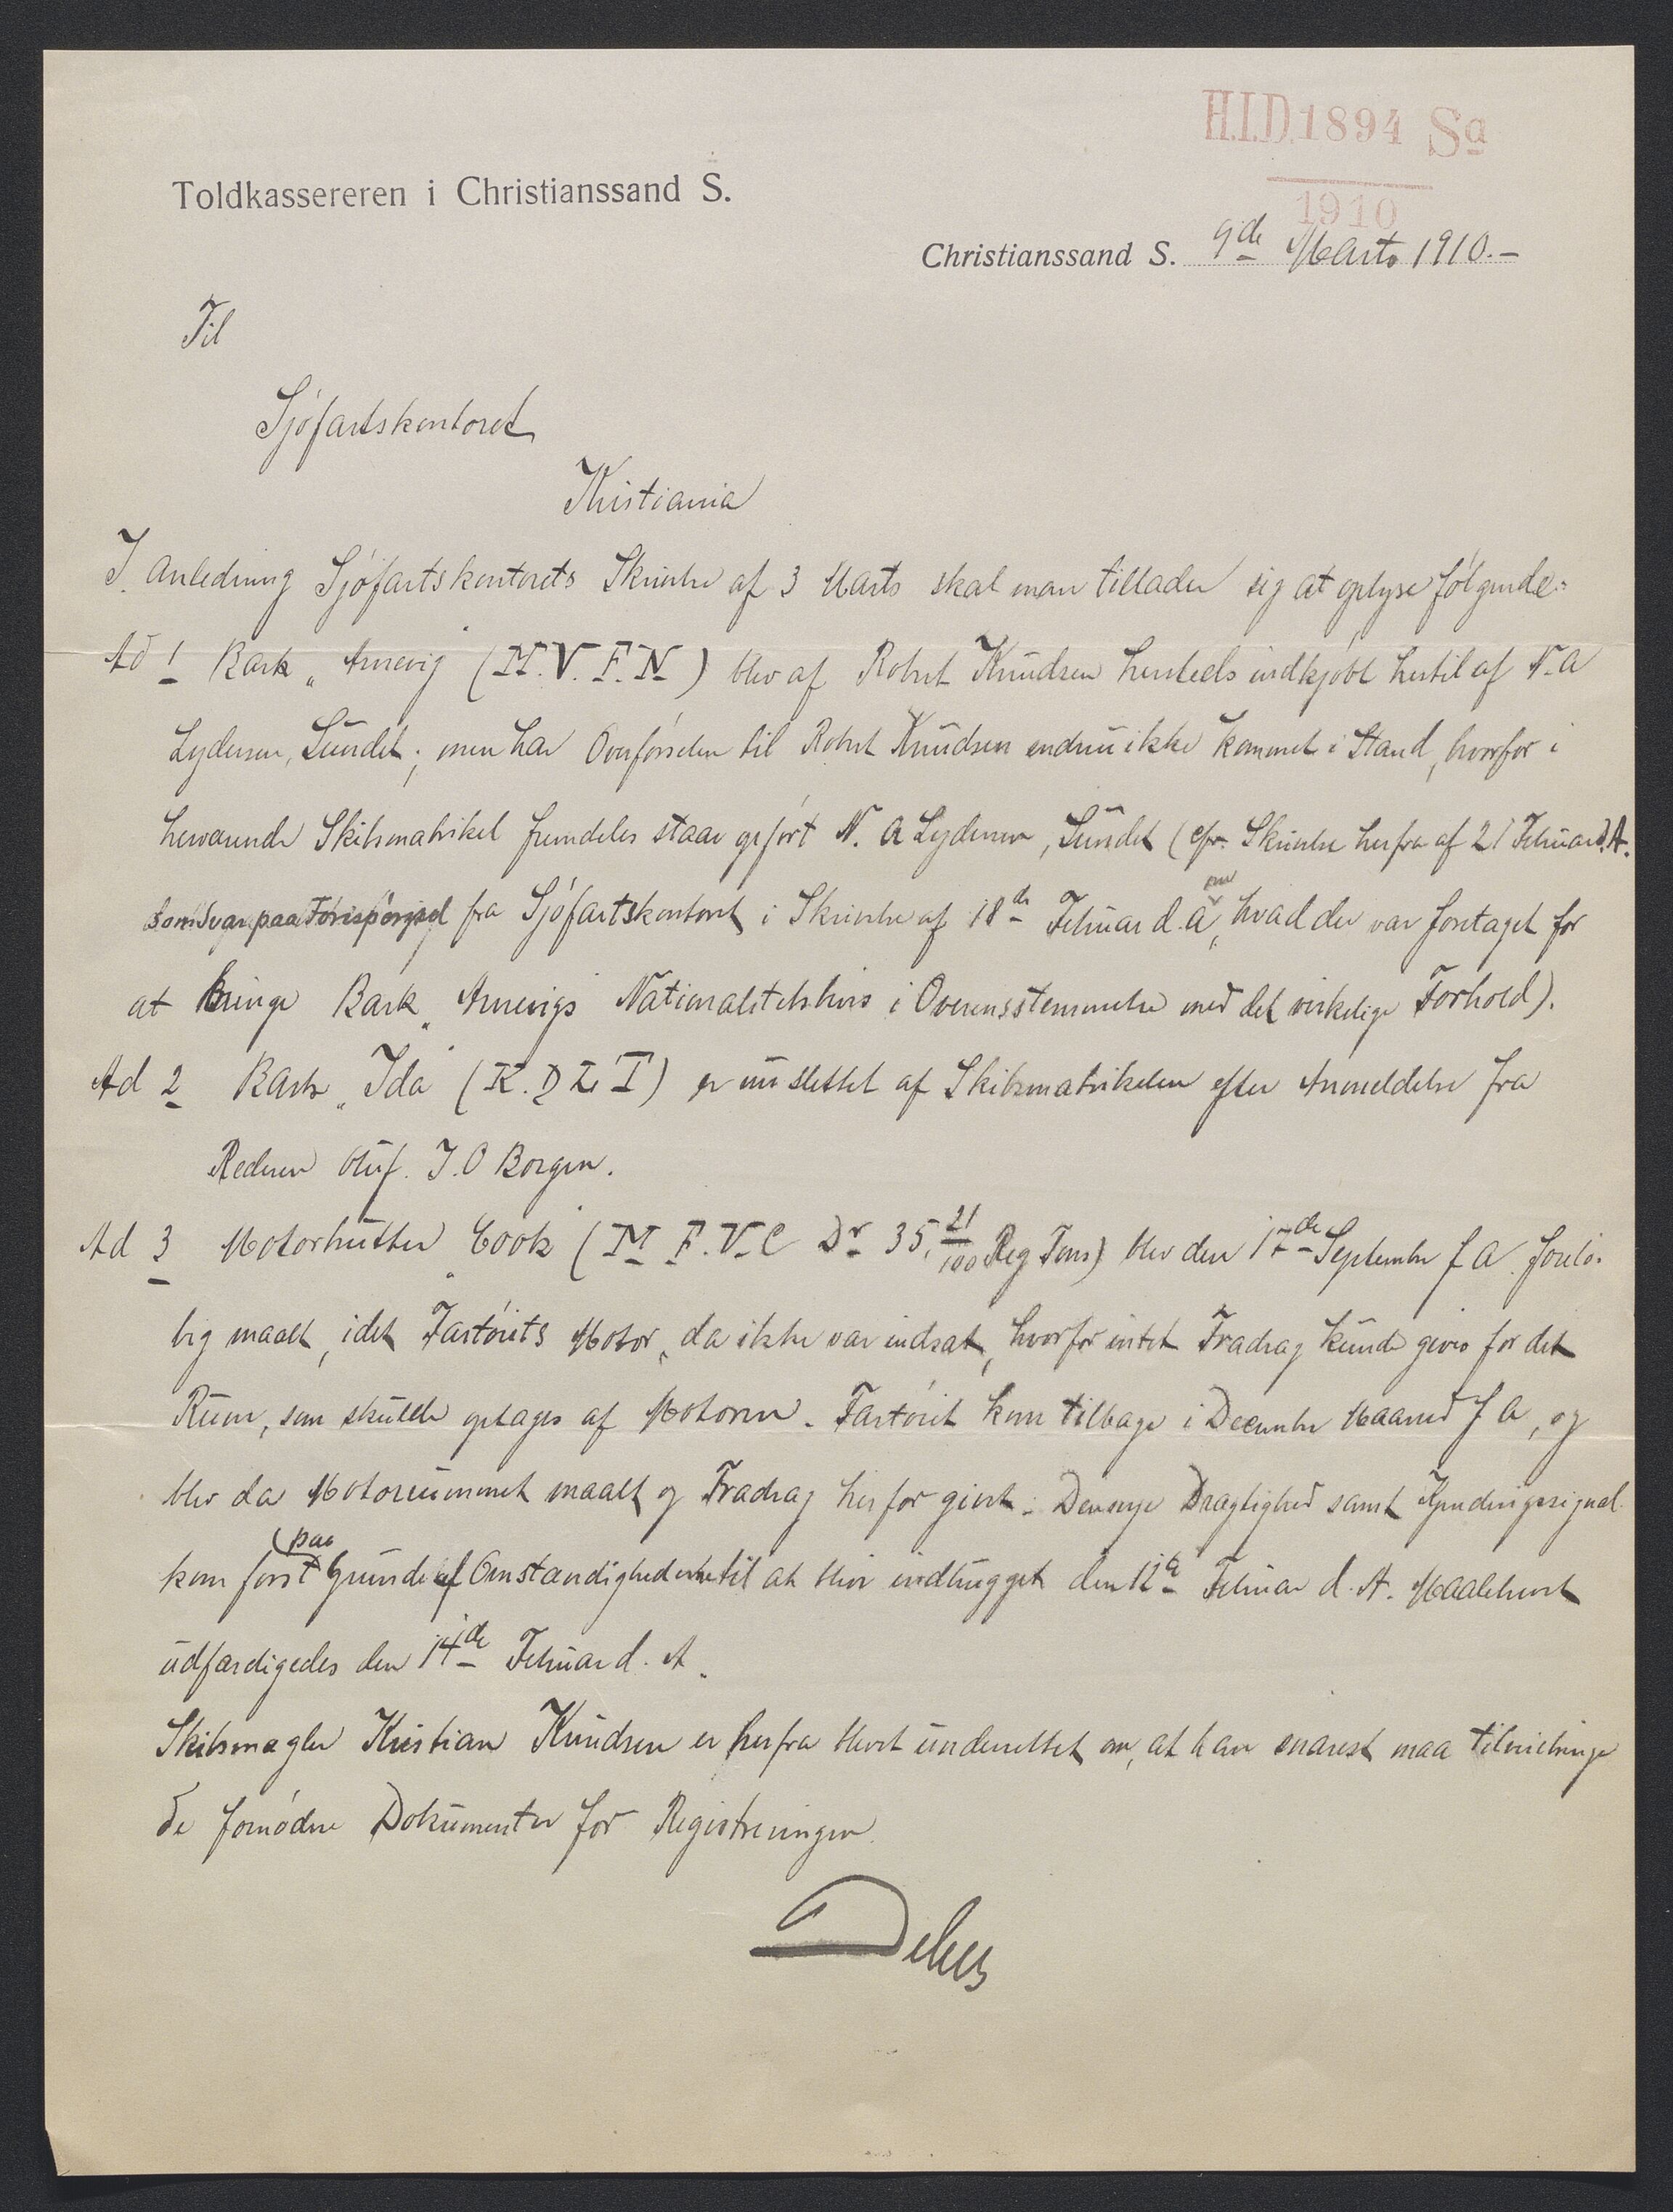 H.I.D. 1894 Sa
1910
Toldkassereren i Christianssand S.
Christianssand S. 9de Marts 1910.-
Til
Sjøfartskontoret
Kristiania
I Anledning Sjøfartskontorets Skrivelse af 3 Marts skal man tillade sig at oplyse følgende:
Ad 1 Bark "Arnevig" (M.V.F.N) blev af Robert Knudsen hersteds indkjøbt hertil af N. A
Lydersen, Sundet; men har Overførselen til Robert Knudsen endnu ikke kommet i Stand, hvorfor i
herværende Skibsmatrikel fremdeles staar opført N. A Lydersen, Sundet (cfr. Skrivelse herfra af 21 Februar d. A.
som Svar paa Forespørgsel fra Sjøfartskontoret i Skrivelse af 18de Februar d. A, om hvad der var foretaget for
at bringe Bark "Arnevigs" Nationalitetsbevis i Overensstemmelse med det virkelige Forhold).
Ad 2 Bark "Ida" (K.D.L.T) er nu slettet af Skibsmatrikelen efter Anmeldelse fra
Rederen Oluf. J. O Borgen.
Ad 3 Motorkutter "Cook" (M F.V.C Dr 35,21/100 Reg Tons) blev den 17de September f A. foreløbig
maalt, idet Fartøiets Motor, da ikke var indsat, hvorfor intet Fradrag kunde gives for det
Rum, som skulde optages af Motoren. Fartøiet kom tilbage i December Maaned f A, og
blev da Motorrummet maalt og Fradrag herfor givet. Den nye Drægtighed samt Kjendingssignal
kom først paa Grund af Omstændighederne til at blive indhugget den 12te Februar d. A. Maalebrevet
udfærdigedes den 14de Februar d. A.
Skibsmægler Kristian Knudsen er herfra blevet underrettet om, at han snarest maa tilveiebringe
de fornødne Dokumenter for Registreringen.